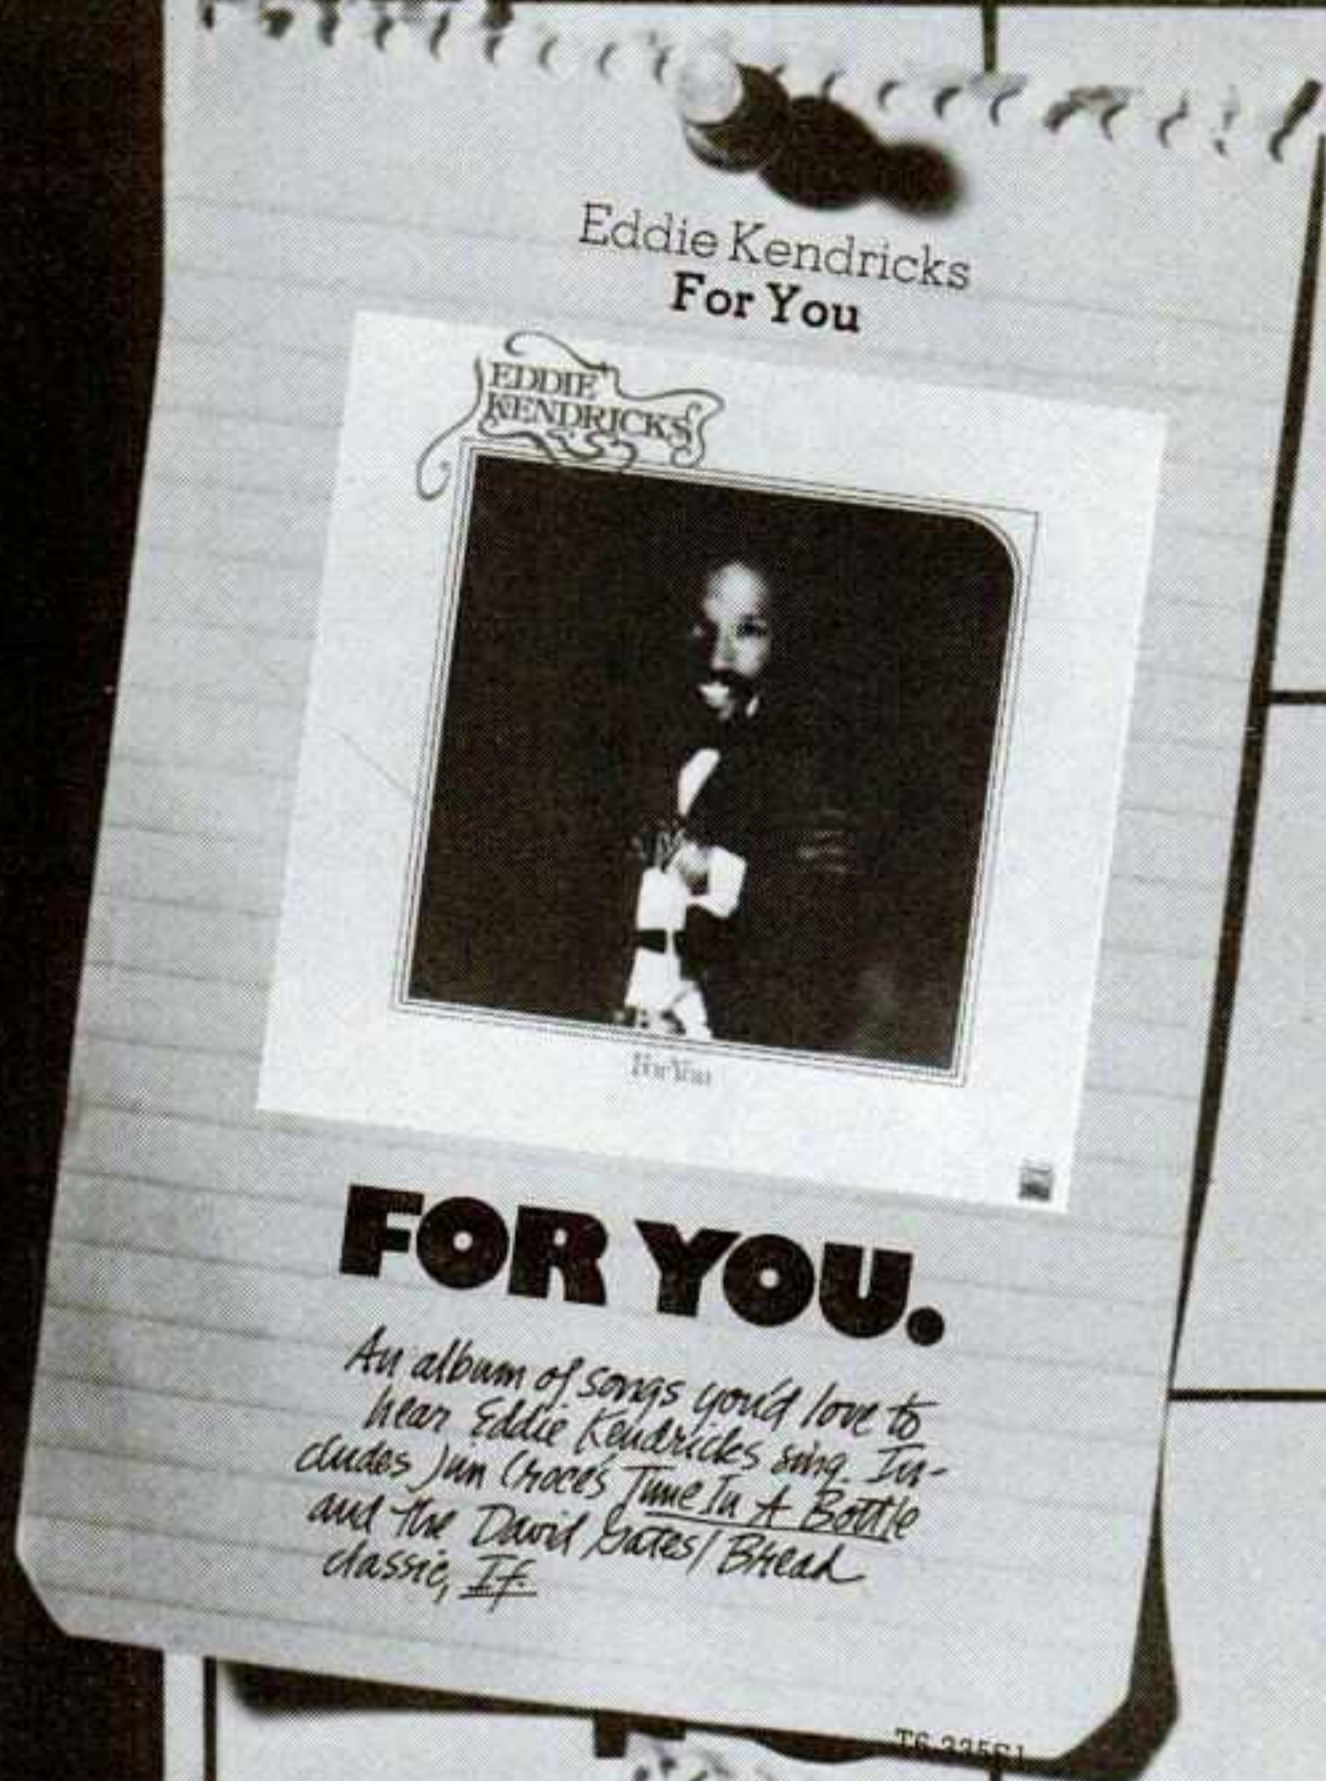 Eddie Kendricks
For You
EDDIE
KENDRICKS
For You
FOR YOU.
An album of songs you'd love to
hear Eddie Kendricks sing. In-
cludes Jim Croce's Time In A Bottle
and the David Gates/Bread
classic, If.